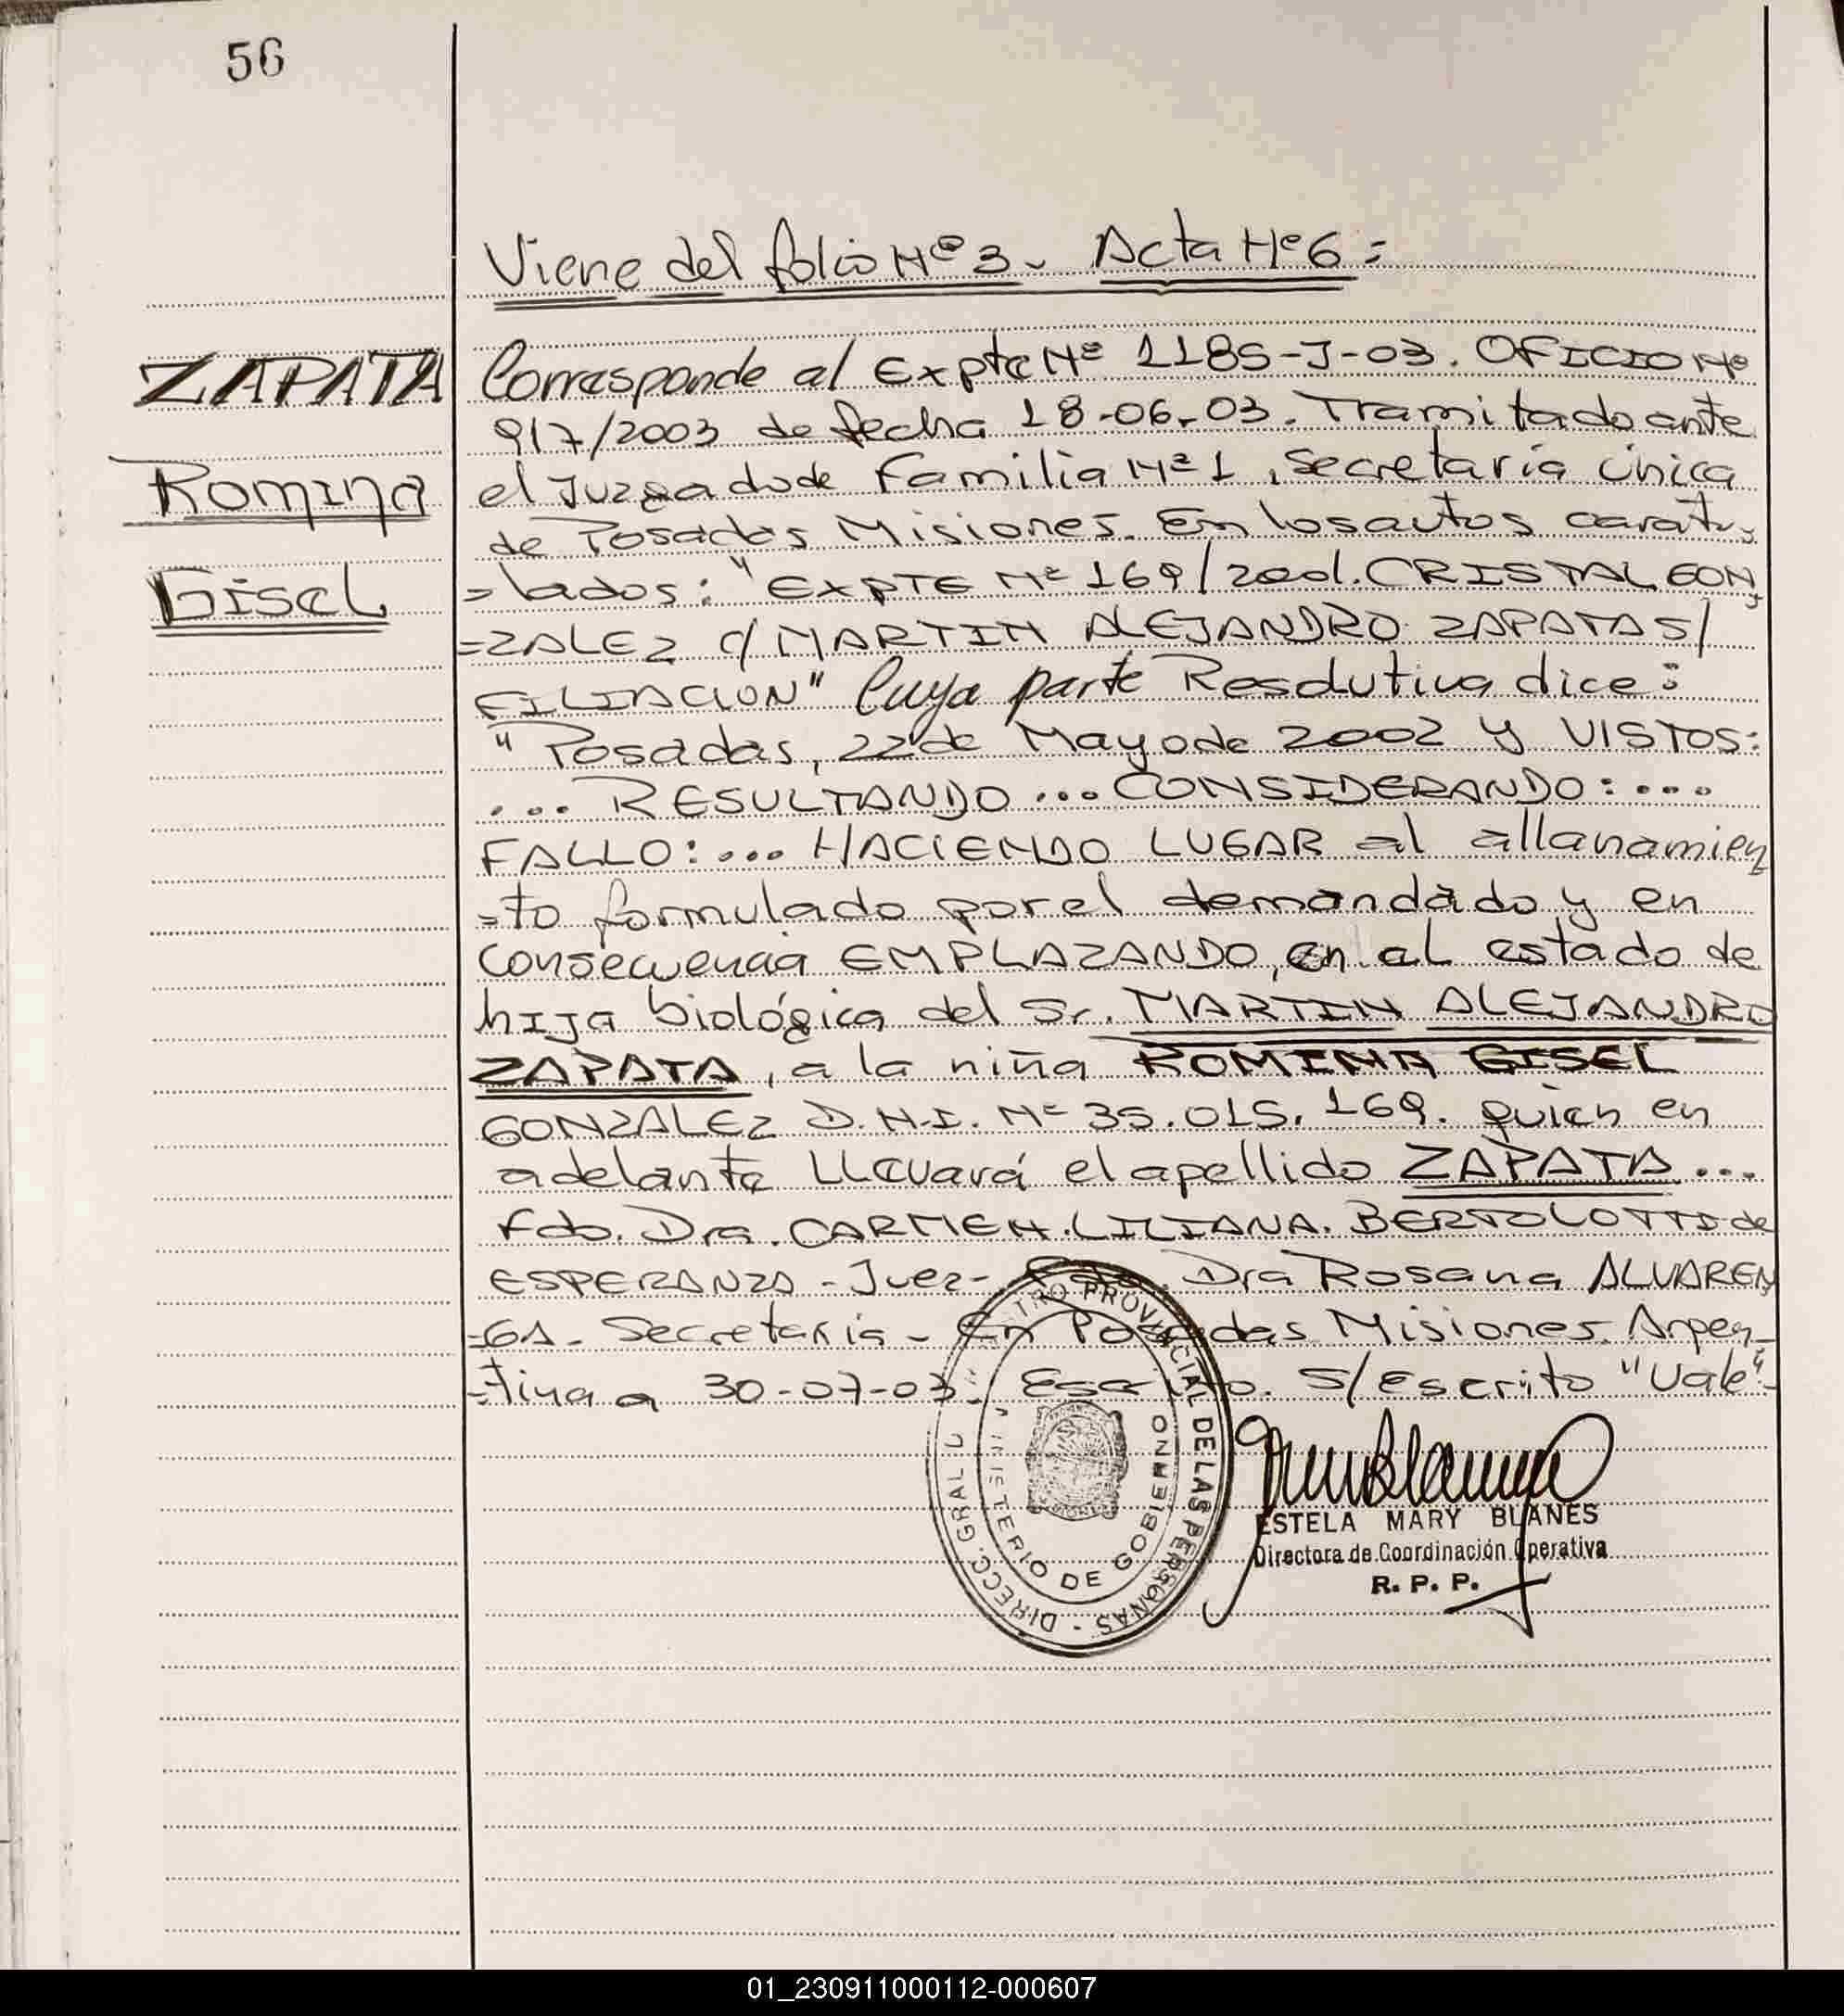 56
Viene del folio Nº 3. Acta Nº 6:
ZAPATA
Romina
Gisel
Corresponde al Expte Nº 1185-J-03. OFICIO Nº
917/2003 de fecha 18-06-03. Tramitado ante
el Juzgado de Familia Nº 1, Secretaría única
de Posadas Misiones. En los autos caratu-
=lados: "EXPTE Nº 169/2001. CRISTAL GON-
=ZALEZ c/ MARTIN ALEJANDRO ZAPATA S/
FILIACION" Cuya parte Resolutiva dice:
"Posadas, 22 de Mayo de 2002 y VISTOS:
... RESULTANDO ... CONSIDERANDO: ....
FALLO: ... HACIENDO LUGAR al allanamien
=to formulado por el demandado y en
consecuencia EMPLAZANDO, en el estado de
hija biológica del Sr. MARTIN ALEJANDRO
ZAPATA, a la niña ROMINA GISEL
GONZALEZ D.N.I. Nº 35.015.169. quien en
adelante LLevará el apellido ZAPATA ...
Fdo. Dra. CARMEN.LILIANA. BERTOLOTTI de
ESPERANZA - Juez- Fdo. Dra Rosana ALVAREN
=GA. Secretaria - En Posadas Misiones. Argen-
=tina a 30-07-03. Escrito. S/Escrito "Vale"-
DIRECC. GRAL. PROVINCIAL DE LAS PERSONAS -
MINISTERIO DE GOBIERNO
ESTELA MARY BLANES
Directora de Coordinación Operativa
R. P. P.
01_230911000112-000607